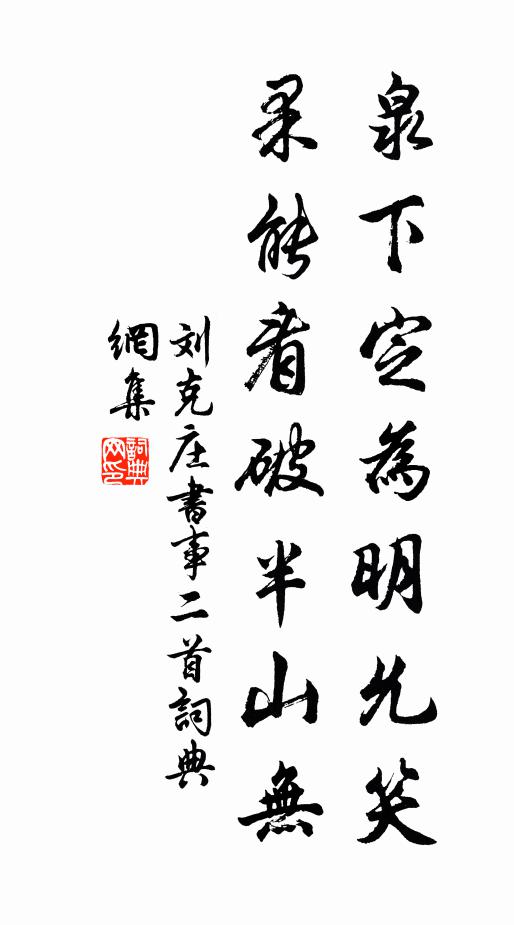 泉下定為明允笑
果能看破半山無
刘克庄書事二首詞典
網集
詞典网印